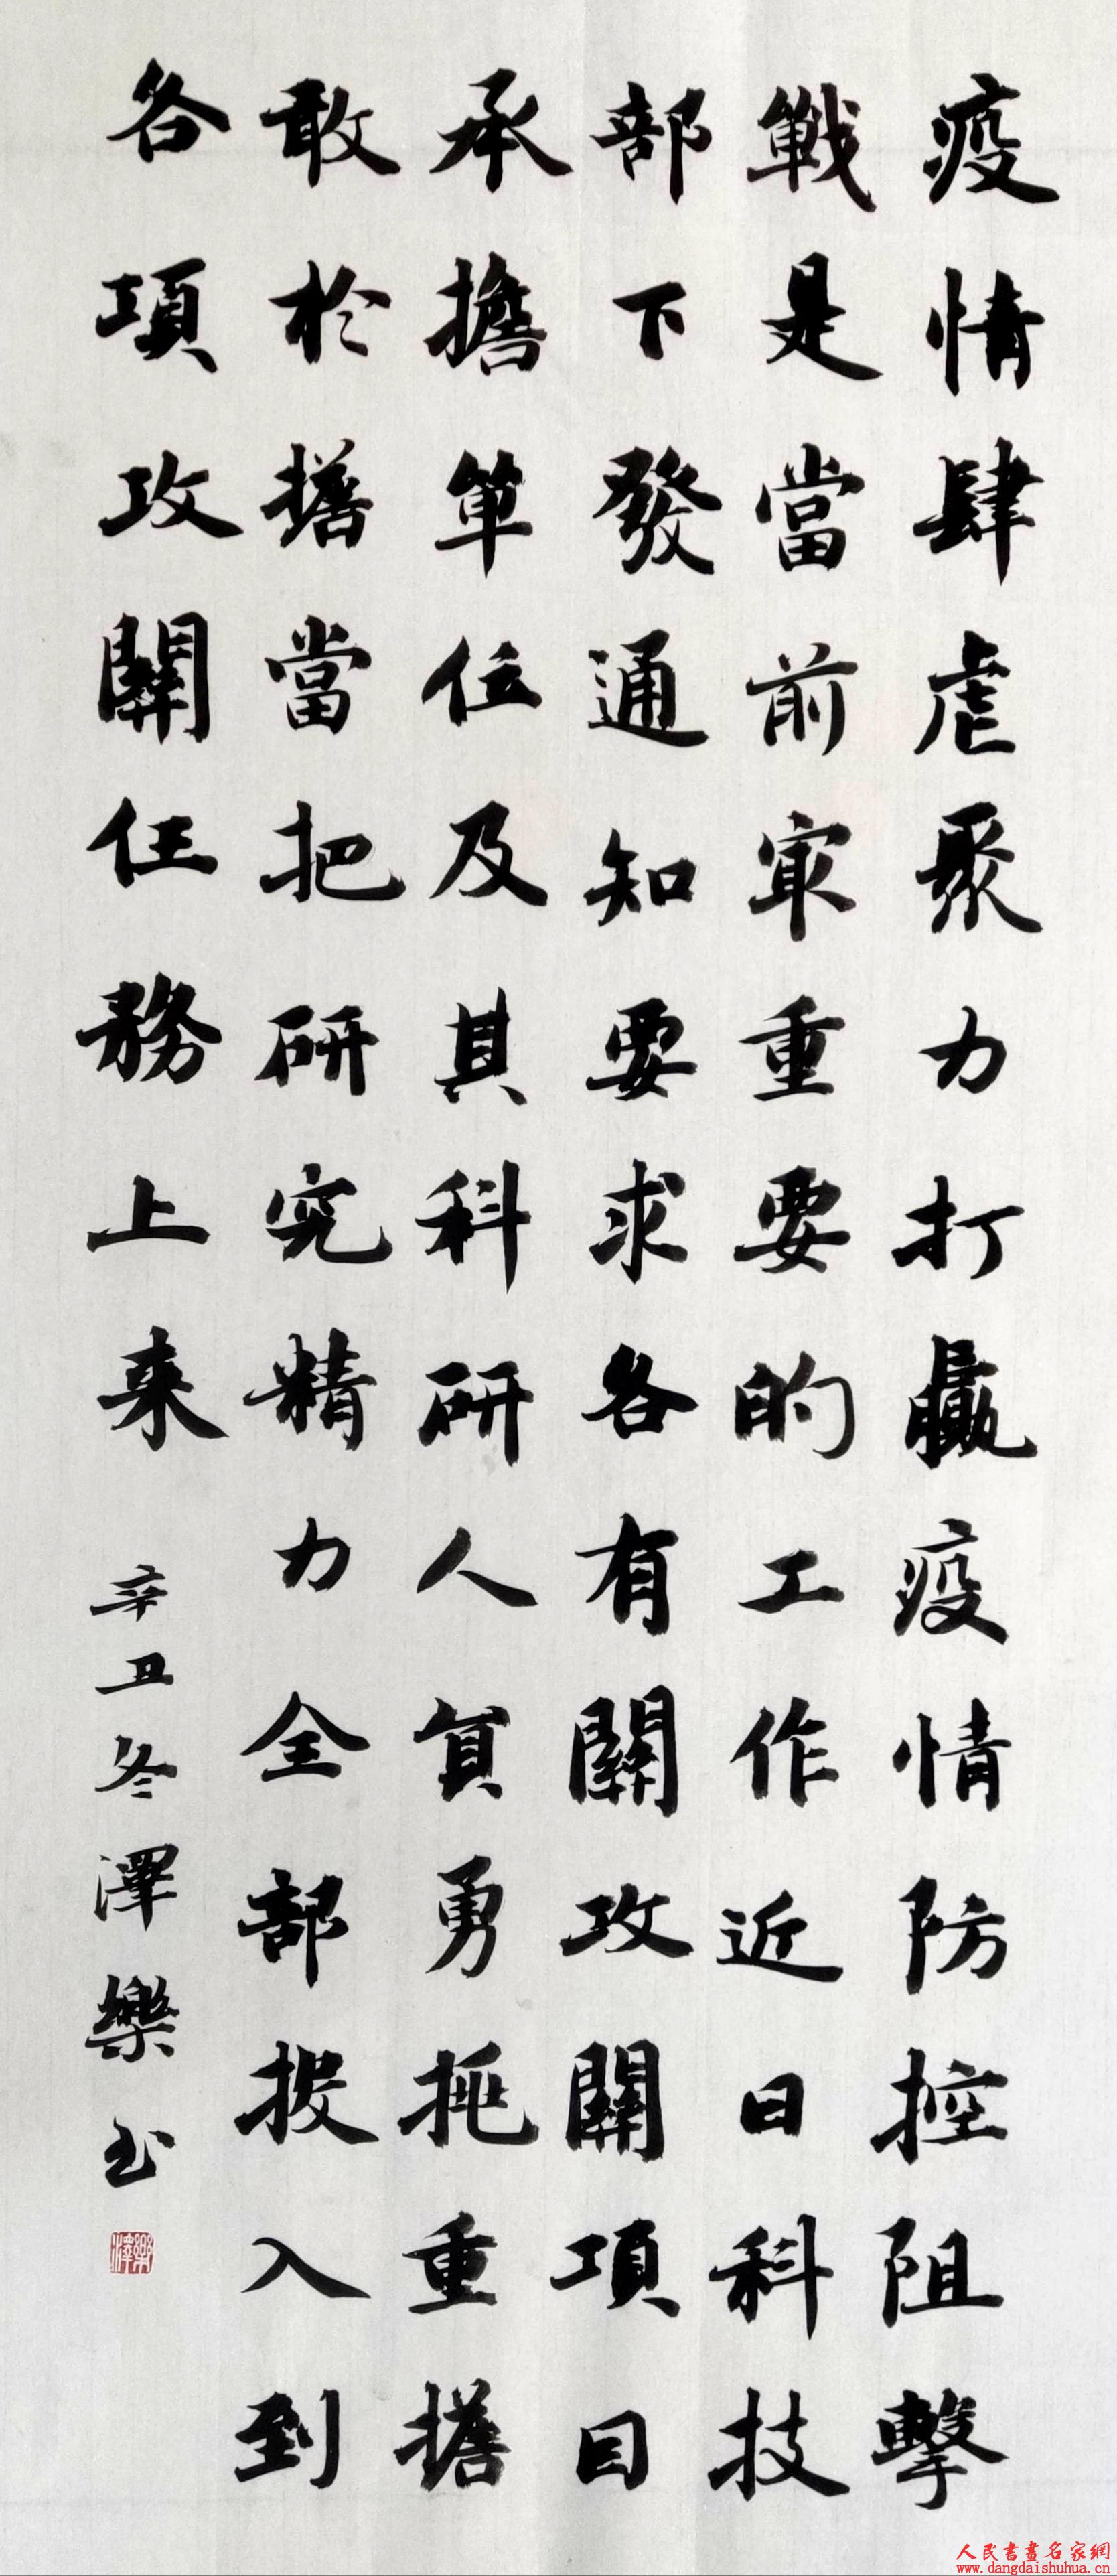 疫情肆虐聚力打贏疫情防控阻擊
戰是當前最重要的工作近日科技
部下發通知要求各有關攻關項目
承擔單位及其科研人員勇挑重擔
敢於擔當把研究精力全部投入到
各項攻關任務上来
辛丑冬澤樂书
樂澤
人民書畫名家網
www.dangdaishuhua.cn